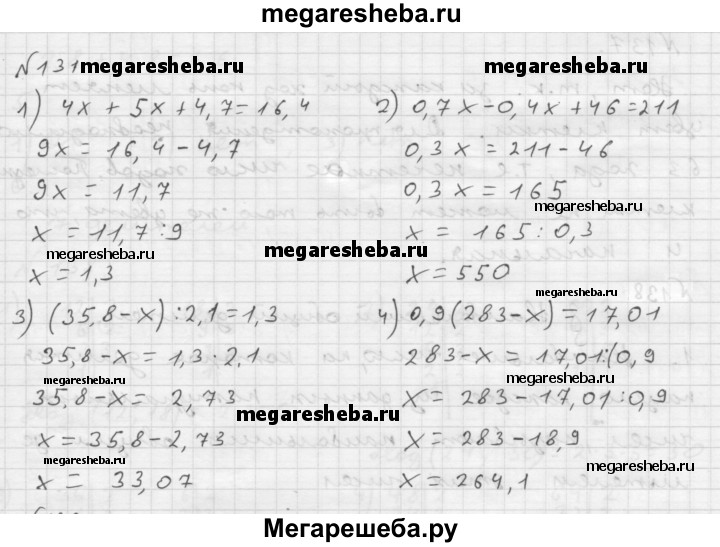 megaresheba.ru
№131 megaresheba.ru megaresheba.ru
1) 4x + 5x + 4,7 = 16,4
9x = 16,4 - 4,7
9x = 11,7
x = 11,7 : 9
megaresheba.ru
x = 1,3
2) 0,7x - 0,4x + 46 = 211
0,3x = 211 - 46
0,3x = 165
megaresheba.ru
x = 165 : 0,3
megaresheba.ru
x = 550
3) (35,8 - x) : 2,1 = 1,3
35,8 - x = 1,3 · 2,1
megaresheba.ru
35,8 - x = 2,73
megaresheba.ru
x = 35,8 - 2,73
x = 33,07
megaresheba.ru
4) 0,9(283 - x) = 17,01
283 - x = 17,01:(0,9
megaresheba.ru
x = 283 - 17,01 : 0,9
x = 283 - 18,9
megaresheba.ru
x = 264,1
Мегарешеба.ру